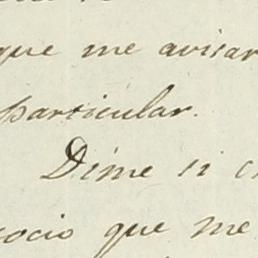 que me avisar
particular.
Dime si
ocio que me